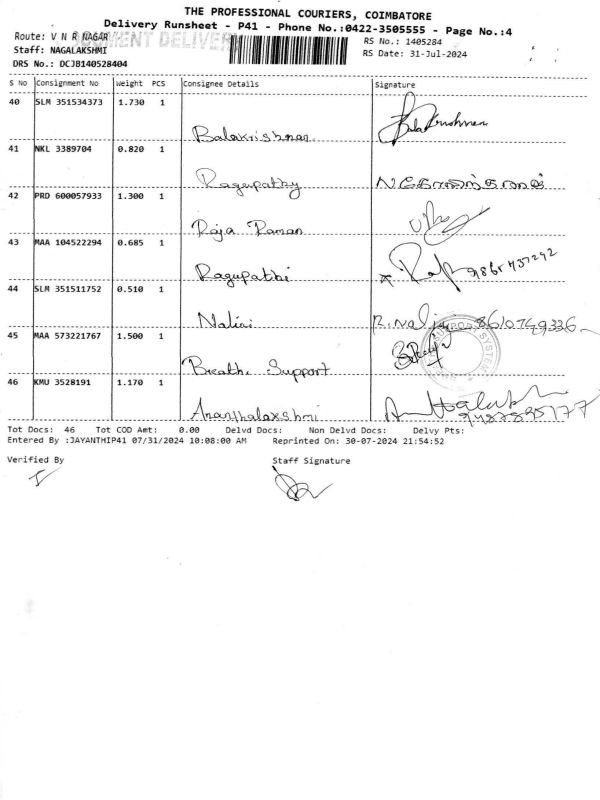 THE PROFESSIONAL COURIERS, COIMBATORE
Delivery Runsheet - P41 - Phone No.:0422-3505555 - Page No.:4
Route: V N R NAGAR
RS No.: 1405284
Staff: NAGALAKSHMI
RS Date: 31-Jul-2024
DRS No.: DCJB140528404
S No Consignment No Weight PCS Consignee Details Signature
40 SLM 351534373 1.730 1
Balakrishnan Balakrishnan
41 NKL 3389704 0.820 1
Ragupathy
42 PRD 600057933 1.300 1
Raja Raman
43 MAA 104522294 0.685 1
Ragupathi
44 SLM 351511752 0.510 1
Nalini
45 MAA 573221767 1.500 1
Breath Support
46 KMU 3528191 1.170 1
Ananthalaxshmi
Tot Docs: 46 Tot COD Amt: 0.00 Delvd Docs: Non Delvd Docs: Delvy Pts:
Entered By :JAYANTHIP41 07/31/2024 10:08:00 AM Reprinted On: 30-07-2024 21:54:52
Verified By Staff Signature